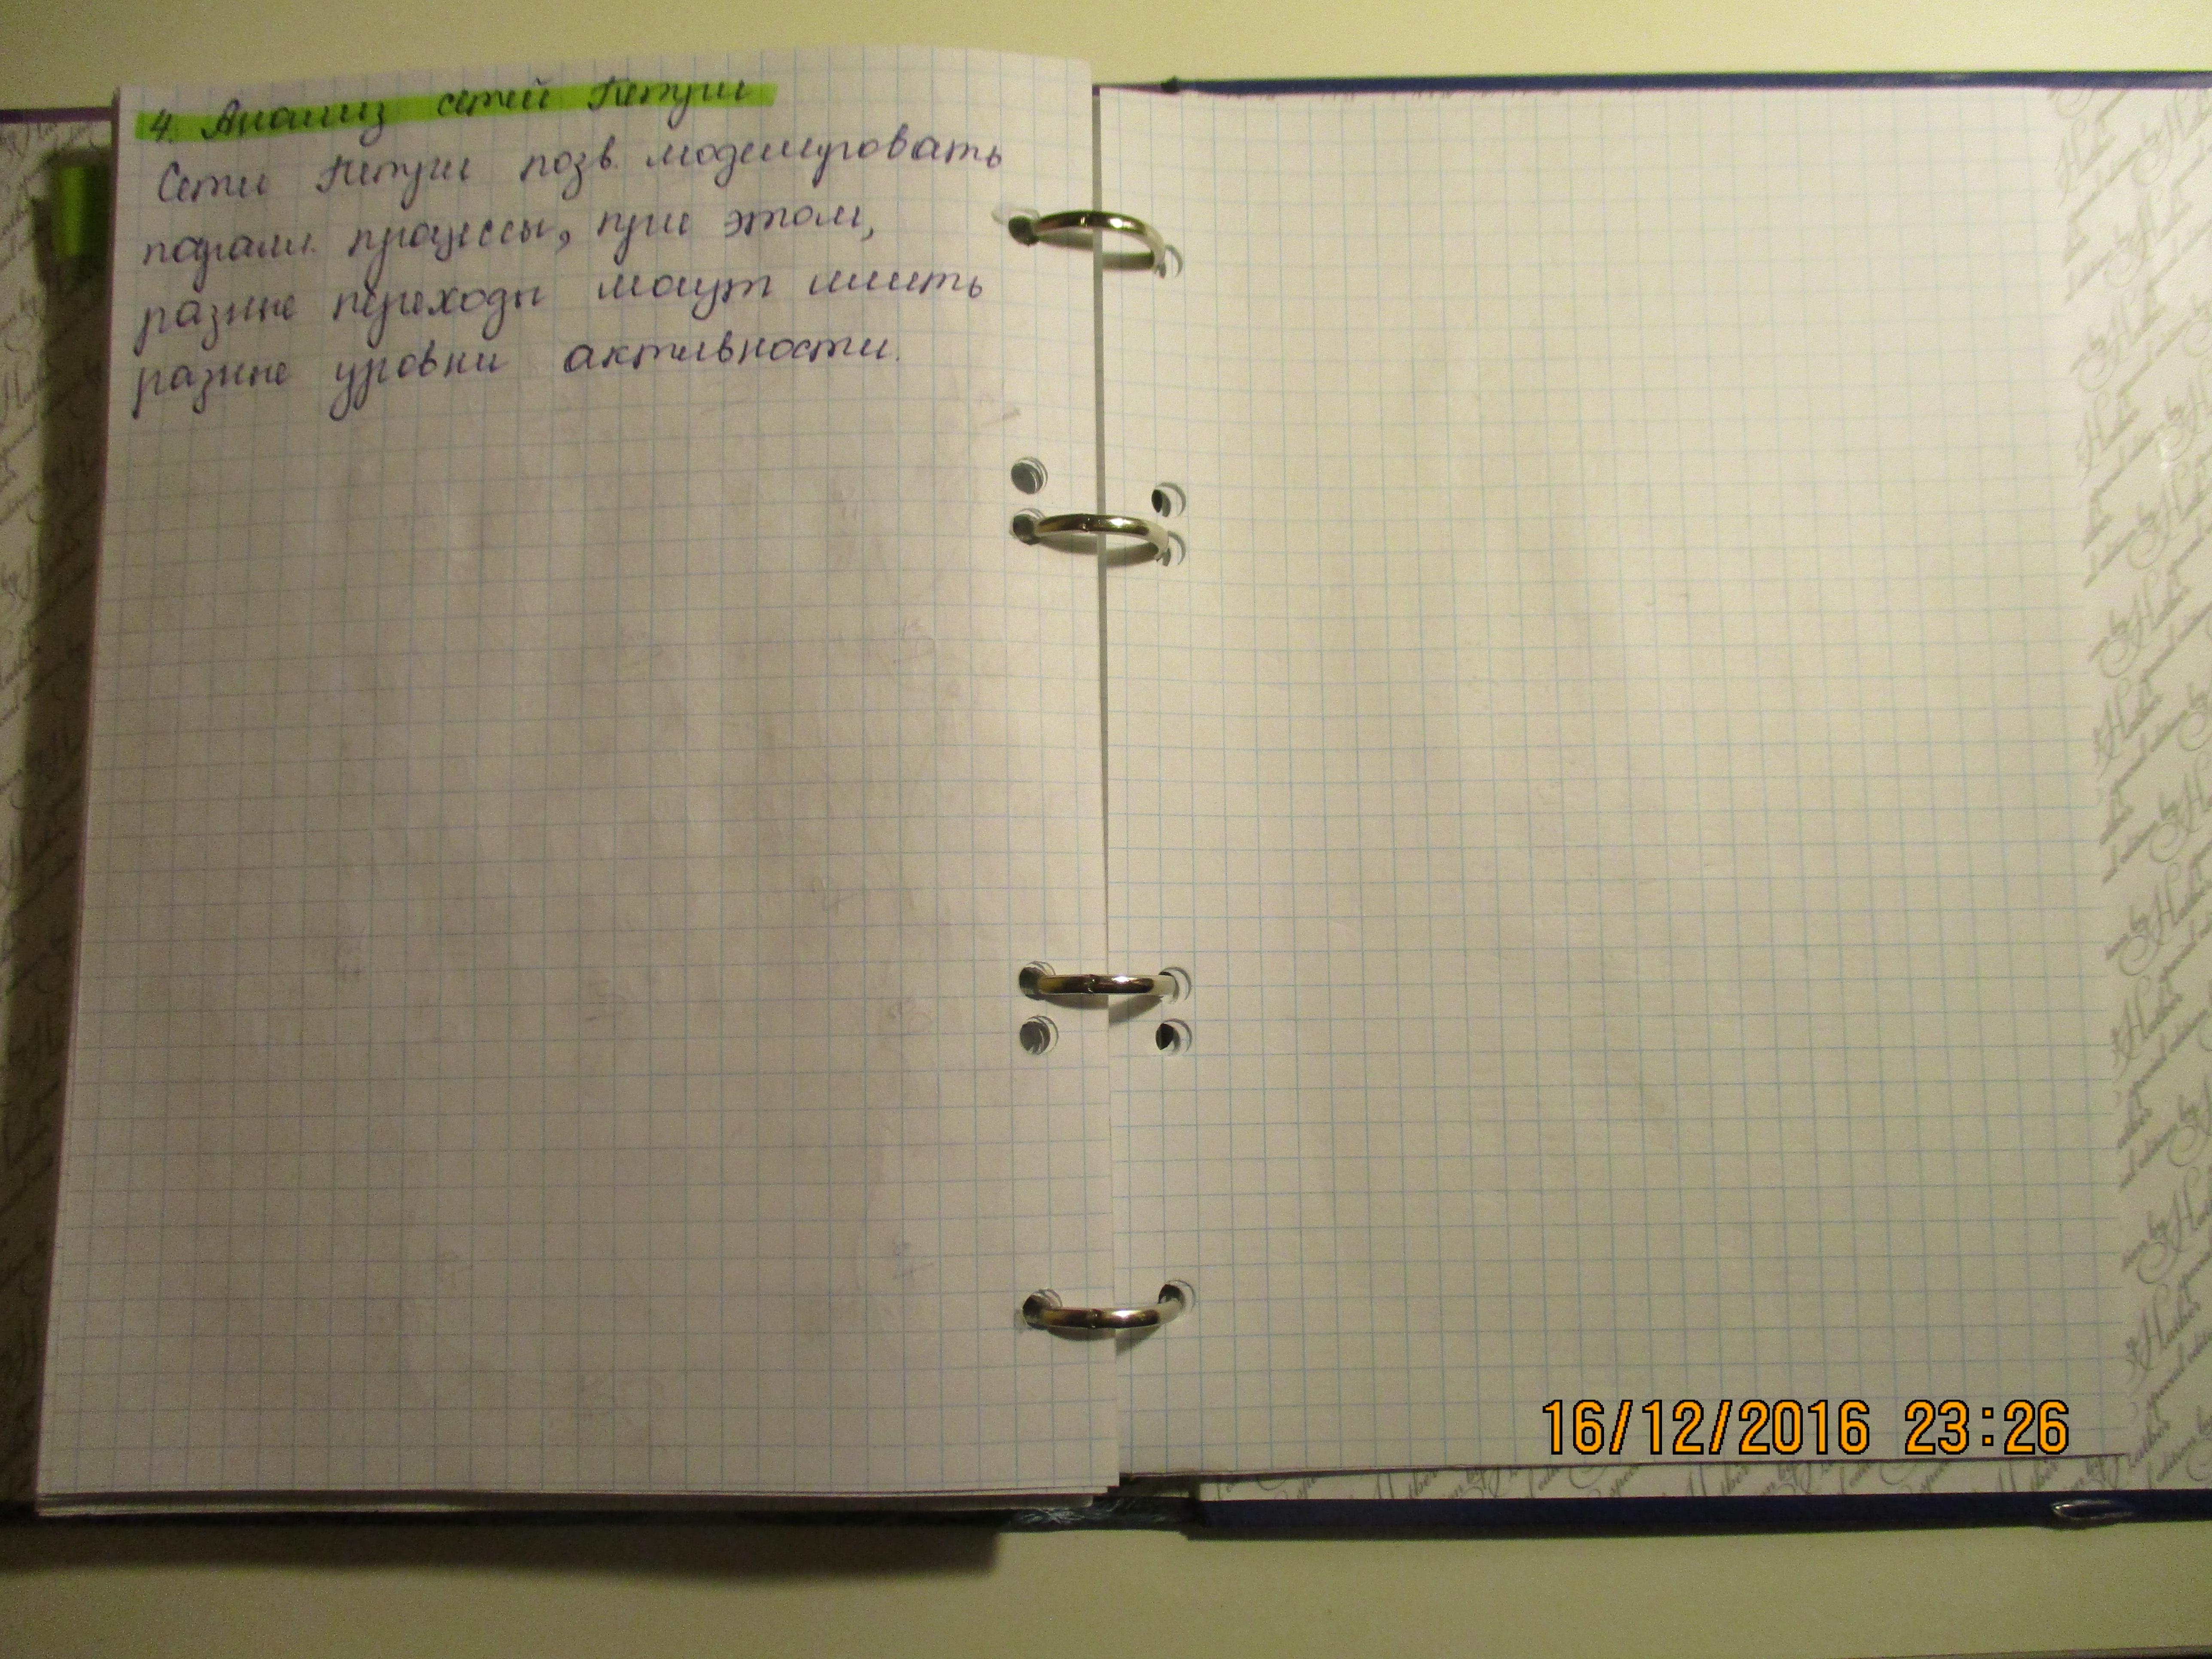 4. Анализ сетей Петри
Сети Петри позв. моделировать
паралл. процессы, при этом,
разные переходы могут иметь
разные уровни активности.
16/12/2016 23:26